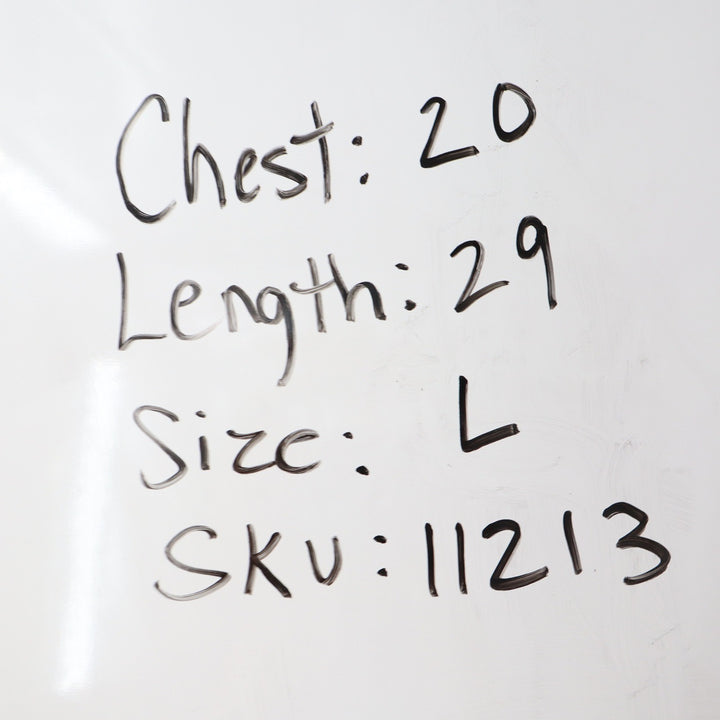 Chest: 20
Length: 29
Size: L
SKU: 11213